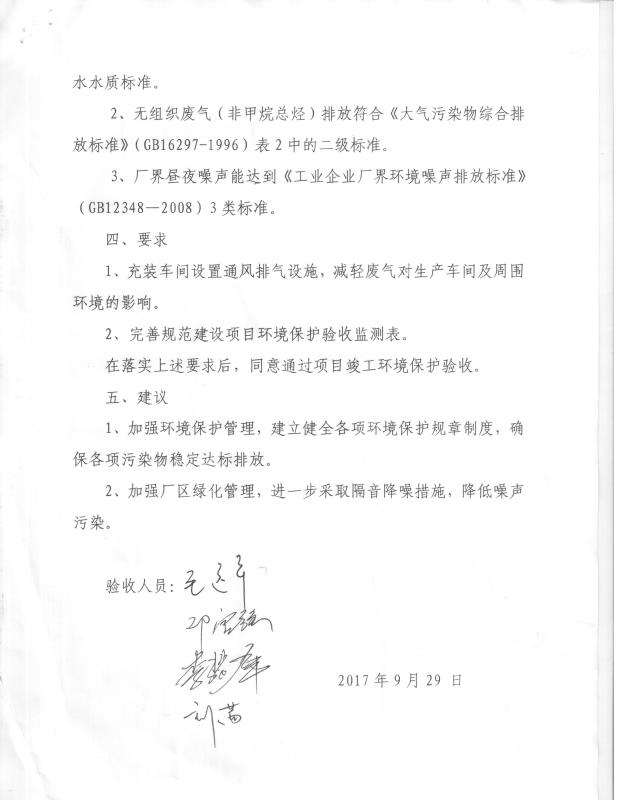 水水质标准。
2、无组织废气（非甲烷总烃）排放符合《大气污染物综合排
放标准》（GB16297-1996）表2中的二级标准。
3、厂界昼夜噪声能达到《工业企业厂界环境噪声排放标准》
（GB12348—2008）3类标准。
四、要求
1、充装车间设置通风排气设施，减轻废气对生产车间及周围
环境的影响。
2、完善规范建设项目环境保护验收监测表。
在落实上述要求后，同意通过项目竣工环境保护验收。
五、建议
1、加强环境保护管理，建立健全各项环境保护规章制度，确
保各项污染物稳定达标排放。
2、加强厂区绿化管理，进一步采取隔音降噪措施，降低噪声
污染。
验收人员：
2017年9月29日